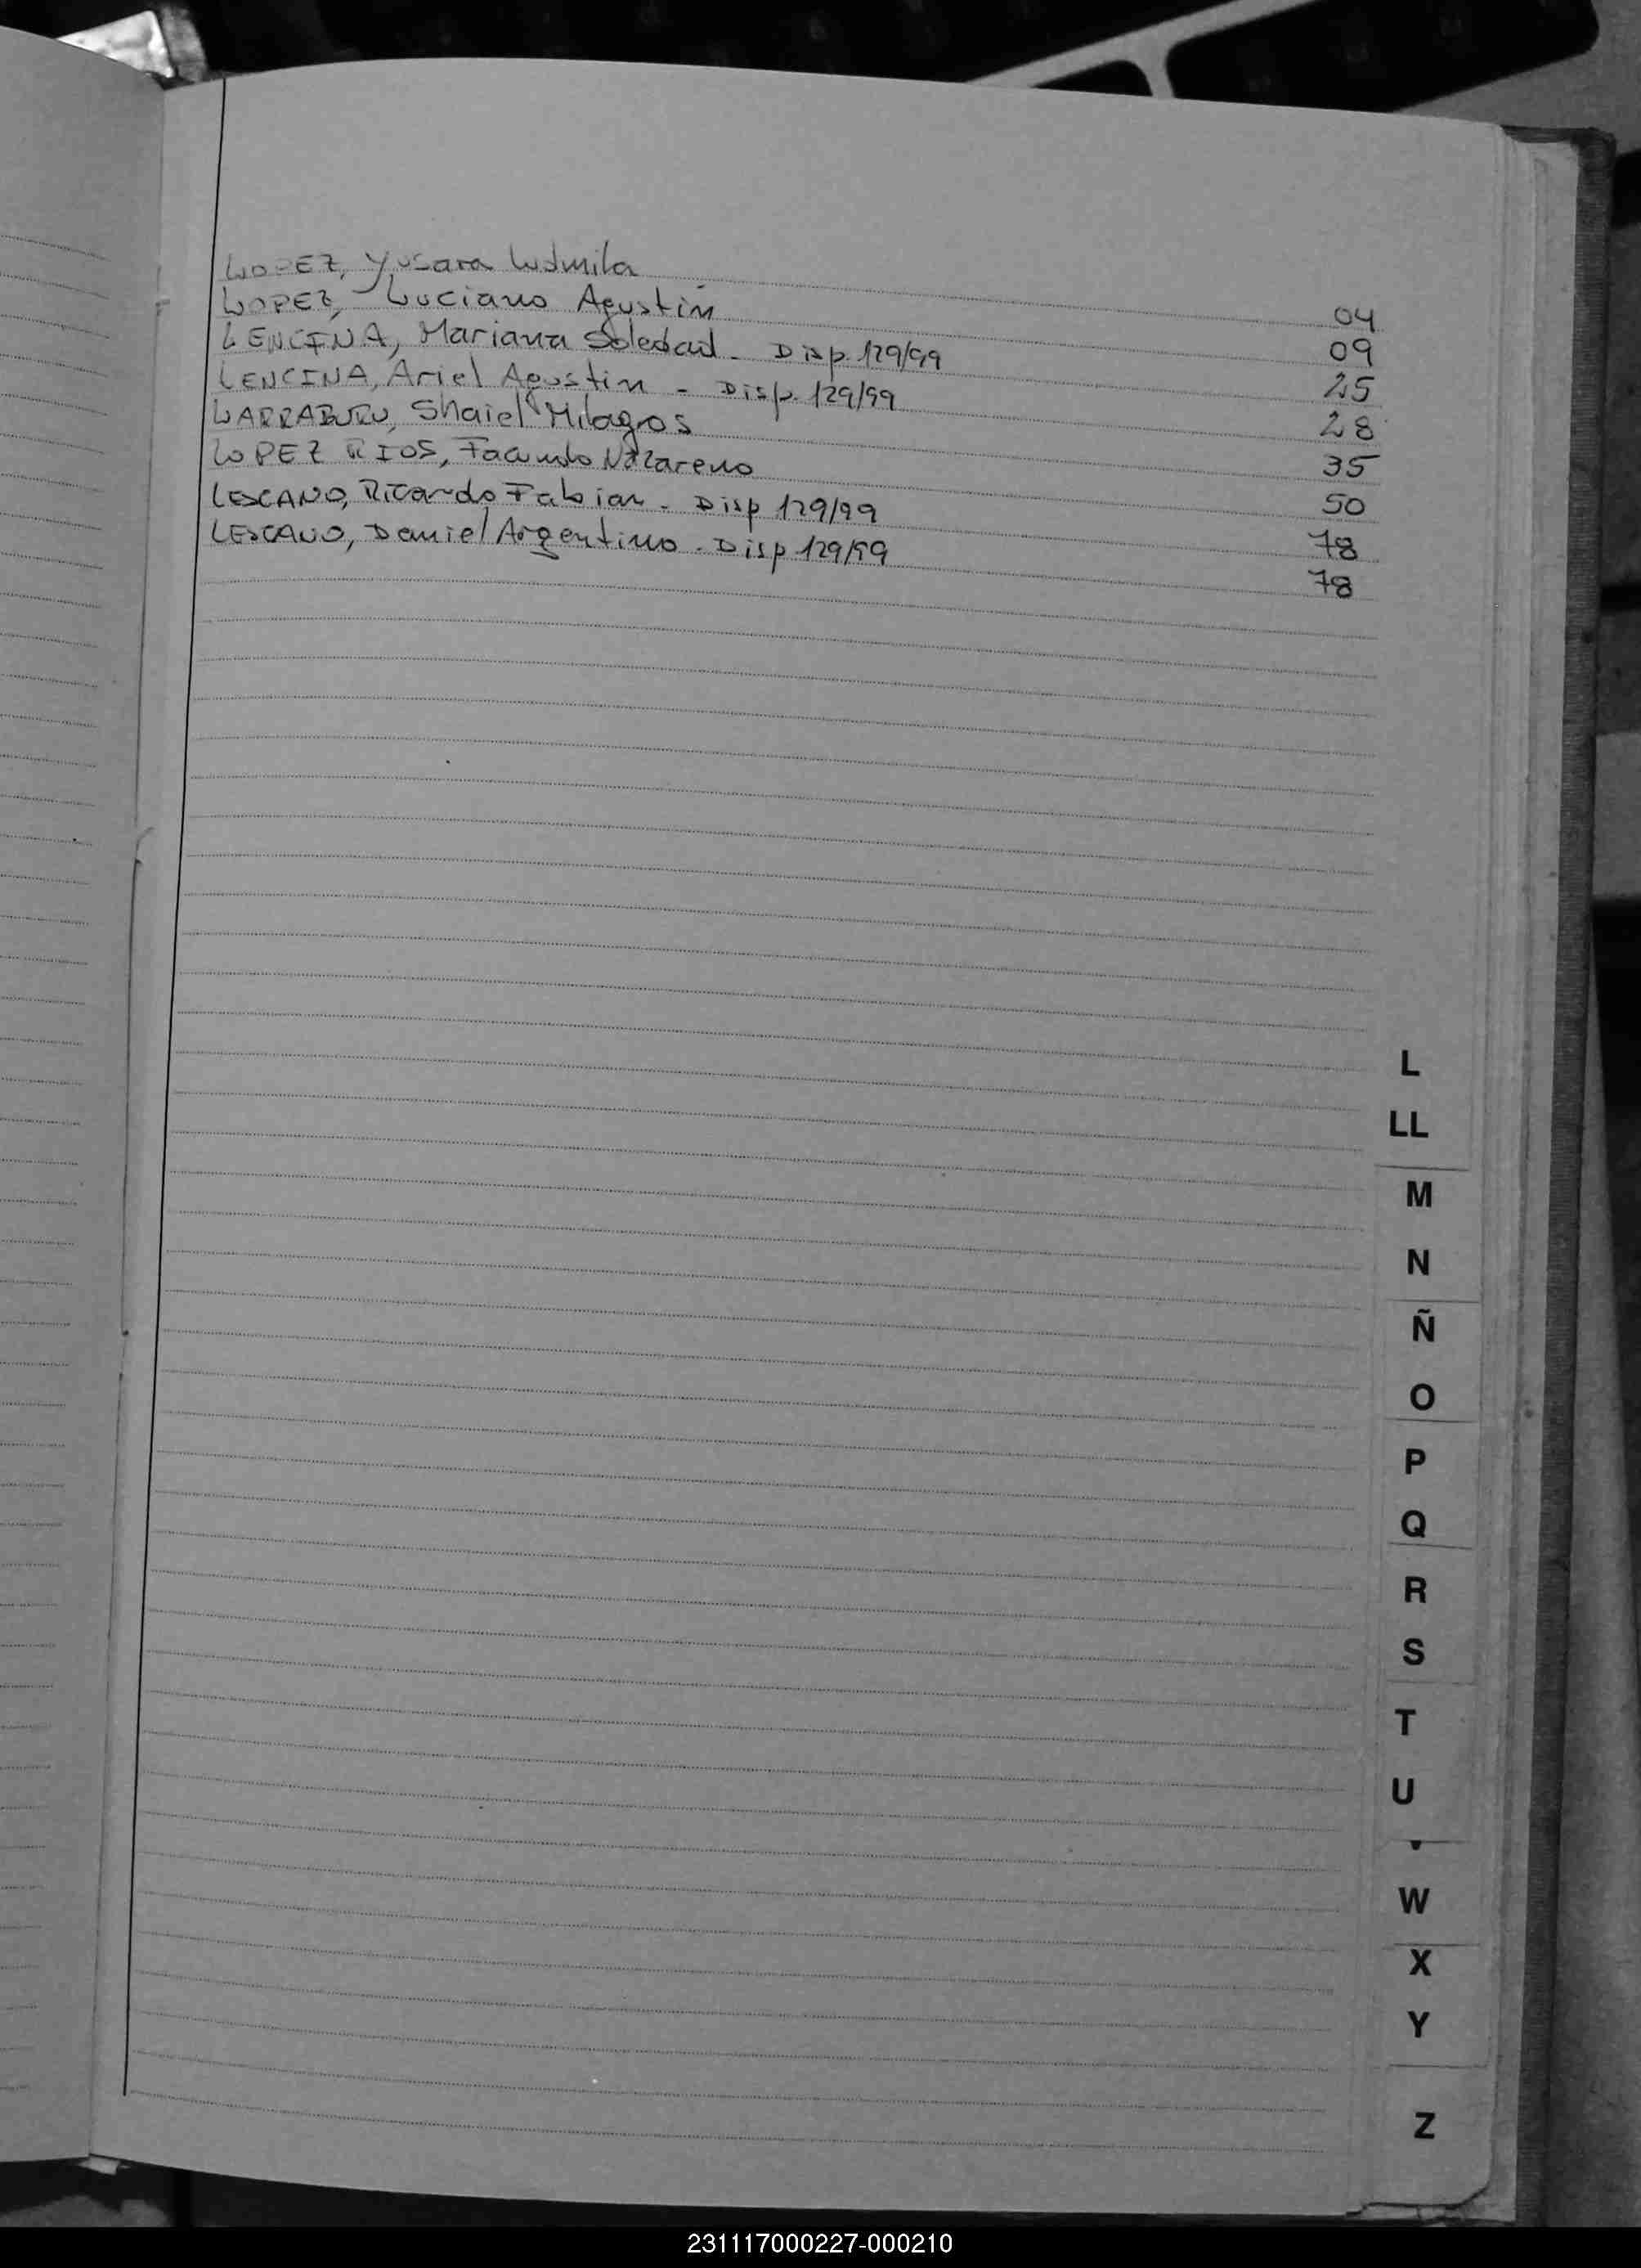 LOPEZ, Yusara Ludmila 04
LOPEZ, Luciano Agustín 09
LENCINA, Mariana Soledad - Disp. 129/99 25
LENCINA, Ariel Agustin - Disp. 129/99 28
LARRABURU, Shaiel Milagros 35
LOPEZ RIOS, Facundo Nazareno 50
LESCANO, Ricardo Fabian - Disp 129/99 78
LESCANO, Daniel Argentino - Disp 129/99 78
L
LL
M
N
Ñ
O
P
Q
R
S
T
U
W
X
Y
Z
231117000227-000210